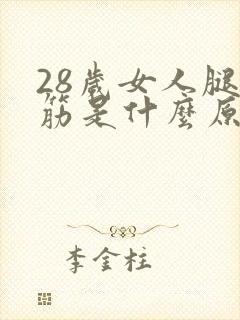 28歲女人腿
筋是什麼原
李金柱